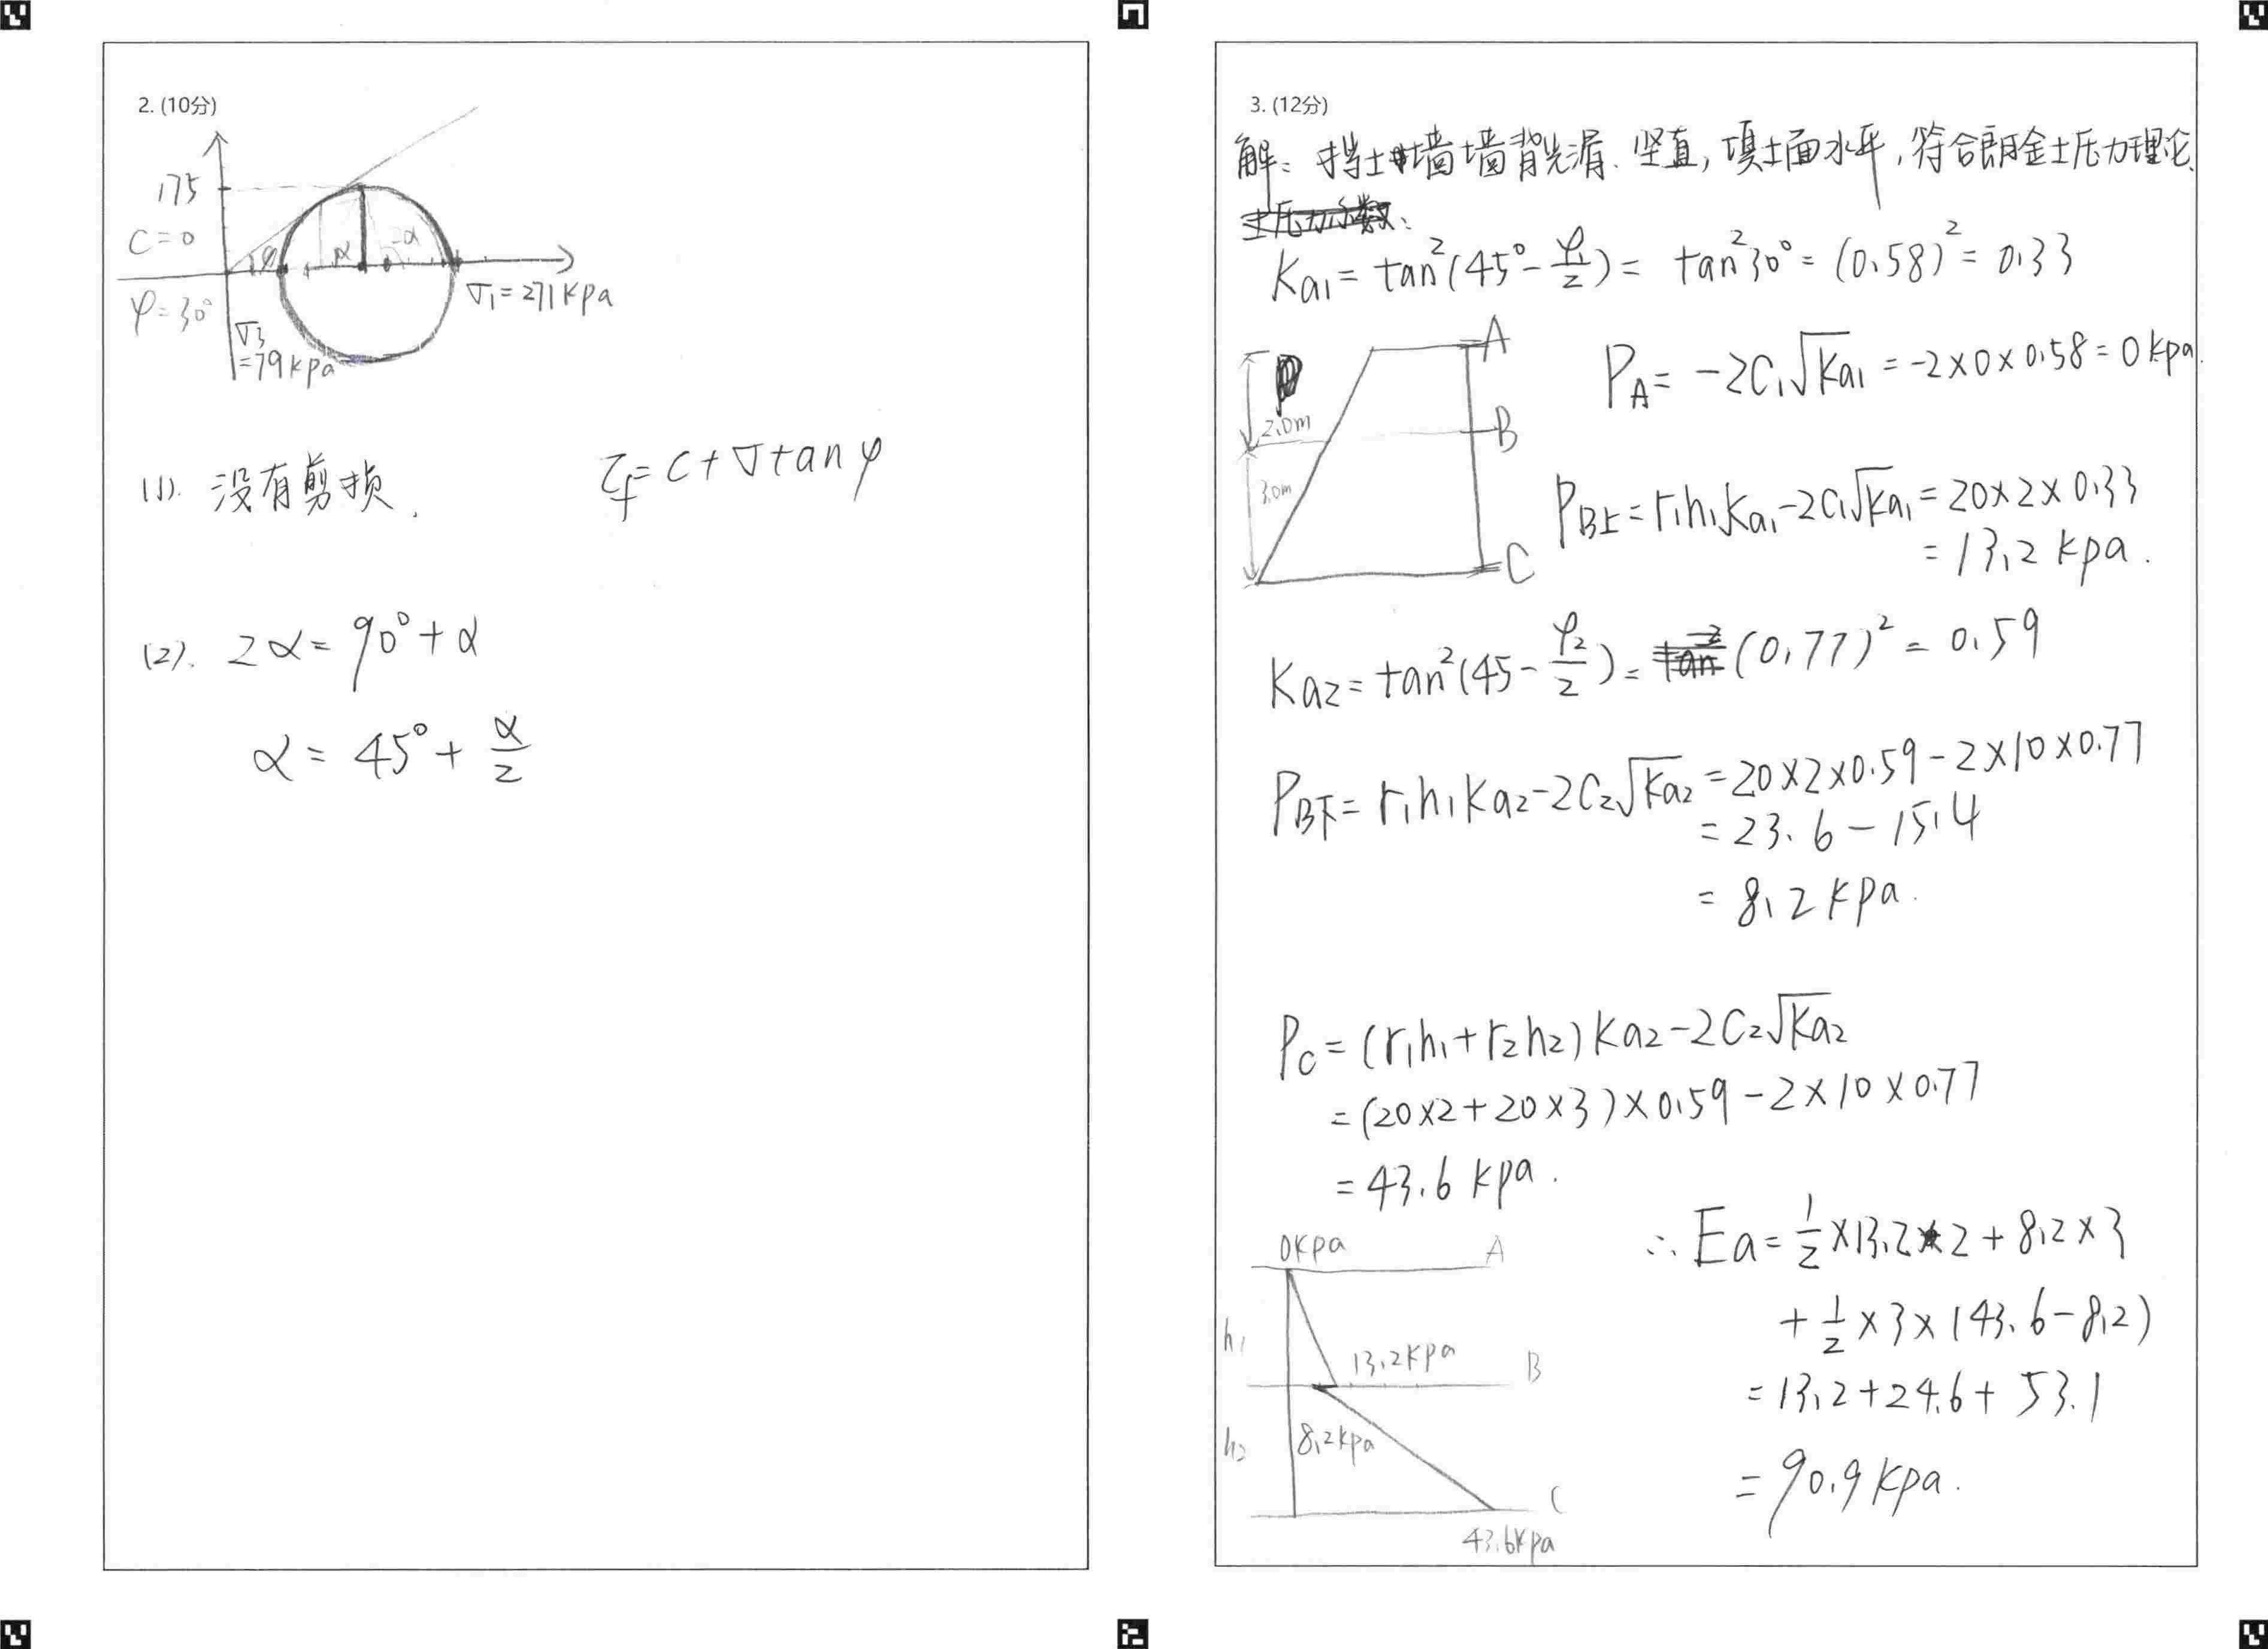 2. (10分)
175
C=0
φ=30°
φ
α
2α
σ₁=271kpa
σ₃
=79kpa
(1). 没有剪损.
τf=C+σtanφ
(2). 2α=90°+α
α=45°+α/2
3. (12分)
解: 挡土墙墙背光滑、竖直,填土面水平,符合朗金土压力理论.
Ka₁=tan²(45°-φ₁/2)=tan²30°=(0.58)²=0.33
A
2.0m
B
3.0m
C
P_A=-2C₁√Ka₁=-2×0×0.58=0kpa.
P_B上=r₁h₁Ka₁-2C₁√Ka₁=20×2×0.33
=13.2kpa.
Ka₂=tan²(45-φ₂/2)=(0.77)²=0.59
P_B下=r₁h₁Ka₂-2C₂√Ka₂=20×2×0.59-2×10×0.77
=23.6-15.4
=8.2kpa.
P_C=(r₁h₁+r₂h₂)Ka₂-2C₂√Ka₂
=(20×2+20×3)×0.59-2×10×0.77
=43.6kpa.
0kpa
A
h₁
13.2kpa
B
h₂
8.2kpa
C
43.6kpa
∴Ea=1/2×13.2×2+8.2×3
+1/2×3×(43.6-8.2)
=13.2+24.6+53.1
=90.9kpa.